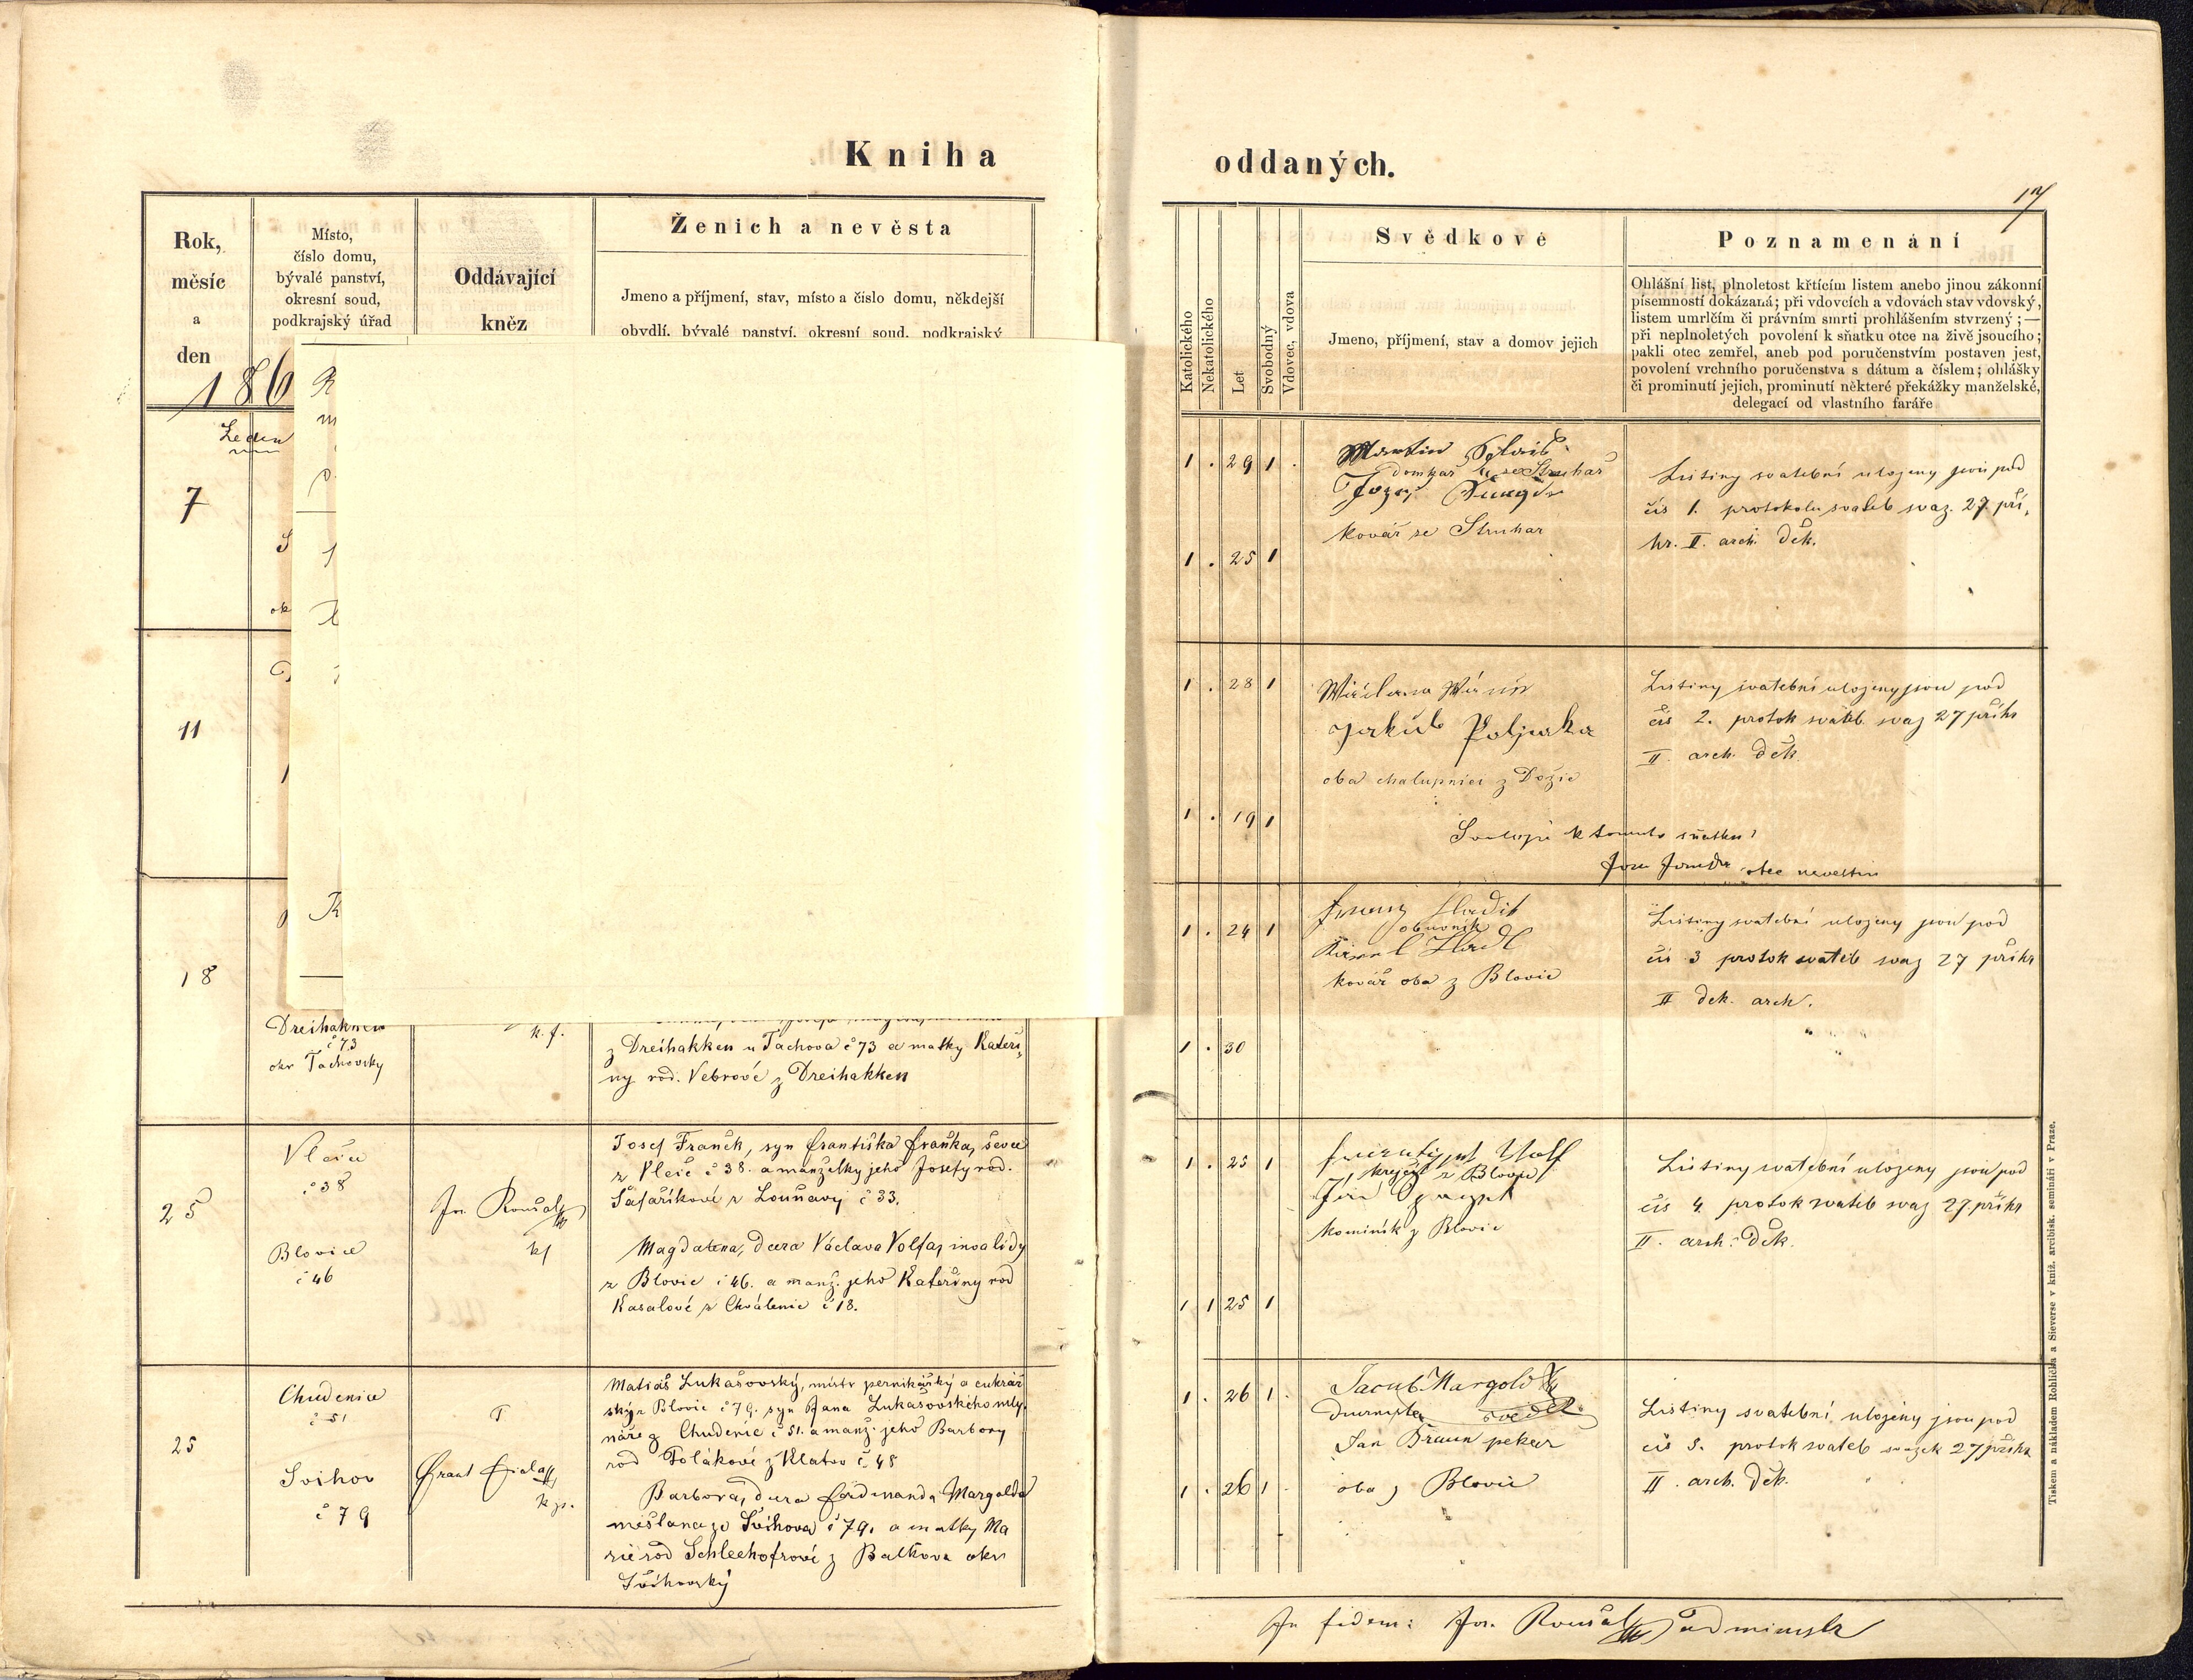 Kniha
oddaných.
17
Rok,
měsíc
a
den
186
Místo,
číslo domu,
bývalé panství,
okresní soud,
podkrajský úřad
Oddávající
kněz
Ženich a nevěsta
Jmeno a příjmení, stav, místo a čislo domu, někdejší
obydlí, bývalé panství, okresní soud, podkrajský
Katolického
Nekatolického
Let
Svobodný
Vdovec, vdova
Svědkové
Jmeno, příjmení, stav a domov jejich
Poznamenání
Ohlášní list, plnoletost křtícím listem anebo jinou zákonní
písemností dokázaná; při vdovcích a vdovách stav vdovský,
listem umrlčím či právním smrti prohlášením stvrzený; —
při neplnoletých povolení k sňatku otce na živě jsoucího;
pakli otec zemřel, aneb pod poručenstvím postaven jest,
povolení vrchního poručenstva s dátum a číslem; ohlášky
či prominutí jejich, prominutí některé překážky manželské,
delegací od vlastního faráře
Leden
7
1 . 29 1 .
1 . 25 1
Martin
domkař ze Struhař
Josef
Kovář ze Struhar
Listiny svatební uloženy jsou pod
čís 1. protokolu svateb svaz. 27 při,
hr. II. arch. Děk.
11
1 . 28 1
1 . 19 1
Jakub Poljaka
oba chalupníci z Dožic
Svoluji k tomuto sňatku
otec nevěstin
Listiny svatební uloženy jsou pod
čis 2. protok svateb svaz 27 příhr
II. arch. Děk.
18
Dreihakken
č 73
okr Tachovský
k. f.
z Dreihakken u Tachova č 73 a matky Kateři,
ny rod. Vebrové z Dreihakken
1 . 24 1
1 . 30
obuvník
Karel Hadl
kovář oba z Blovic
Listiny svatební uloženy jsou pod
čís 3 protok svateb svaz 27 příhr
II dek. arch.
25
Vlčic
č 38
Blovice
č 46
Jos. Roušal
kf
Josef Franěk, syn Františka Fraňka, ševce
z Vlčic č 38. a manželky jeho Josefy rod.
Šafaříkové z Louňavy č 33.
Magdalena, dcera Václava Volfa, invalidy
z Blovic č 46. a manž. jeho Kateřiny rod
Kasalové z Chválenic č 18.
1 . 25 1
1 1 25 1
krejčí z Blovic
Kominík z Blovic
Listiny svatební uloženy jsou pod
čís 4. protok svateb svaz 27. příhr
II. arch. Děk.
25
Chudenice
č 51
Svihov
č 79
Frant Fiala
kp.
Matiáš Lukašovský, mistr pernikářský a cukrář
ský z Blovic č 79. syn Jana Lukašovského mly,
náře z Chudenic č 51. a manž. jeho Barbory
rod Polákové z Klatov č 48
Barbora, dcera Ferdinanda Margolda
měšťana ze Svihova č 79. a matky Ma
rie rod Schleehofrové z Balkova okr
Švihovský
1 . 26 1 .
1 . 26 1 .
Jacub Margold
svědek
Jan Braun pekař
oba z Blovic
Listiny svatební uloženy jsou pod
čís 5. protok svateb svazek 27 příhr
II . arch. Děk.
In fidem: Jos. Roušal administr
Tiskem a nákladem Rohlíčka a Sieverse v kníž. arcibisk. semináři v Praze.